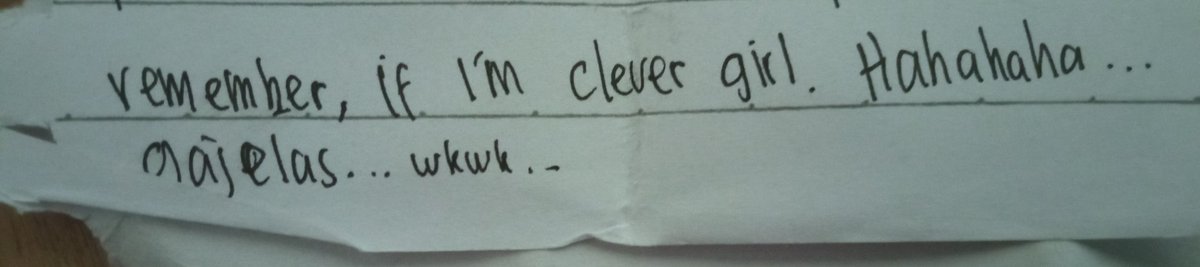 remember, if I'm clever girl. Hahahaha...
gajelas... wkwk..